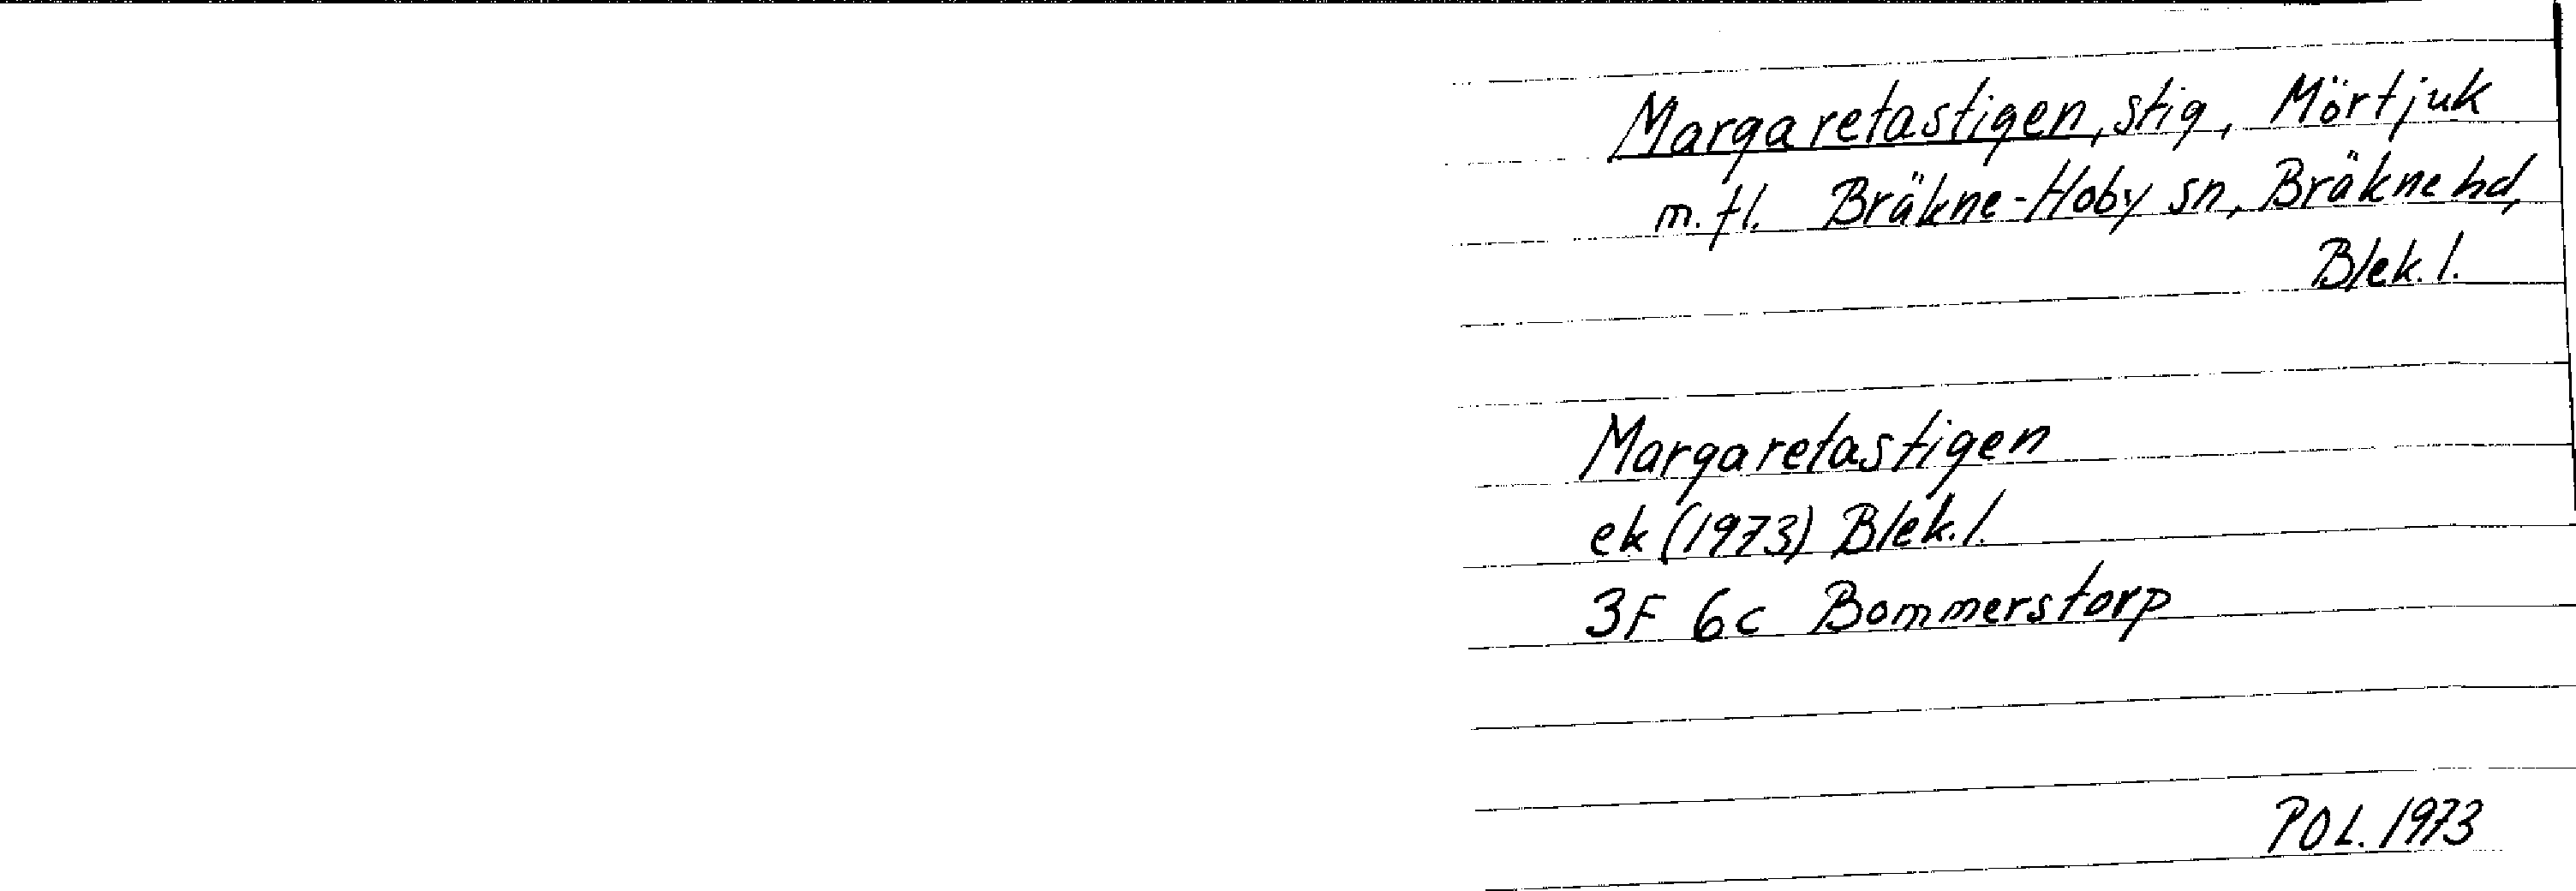 Margaretastigen, stig, Mörtjuk
m.fl. Bräkne-Hoby sn, Bräkne hd,
Blek. l.
Margaretastigen
ek (1973) Blek. l.
3F 6c Bommerstorp
POL. 1973